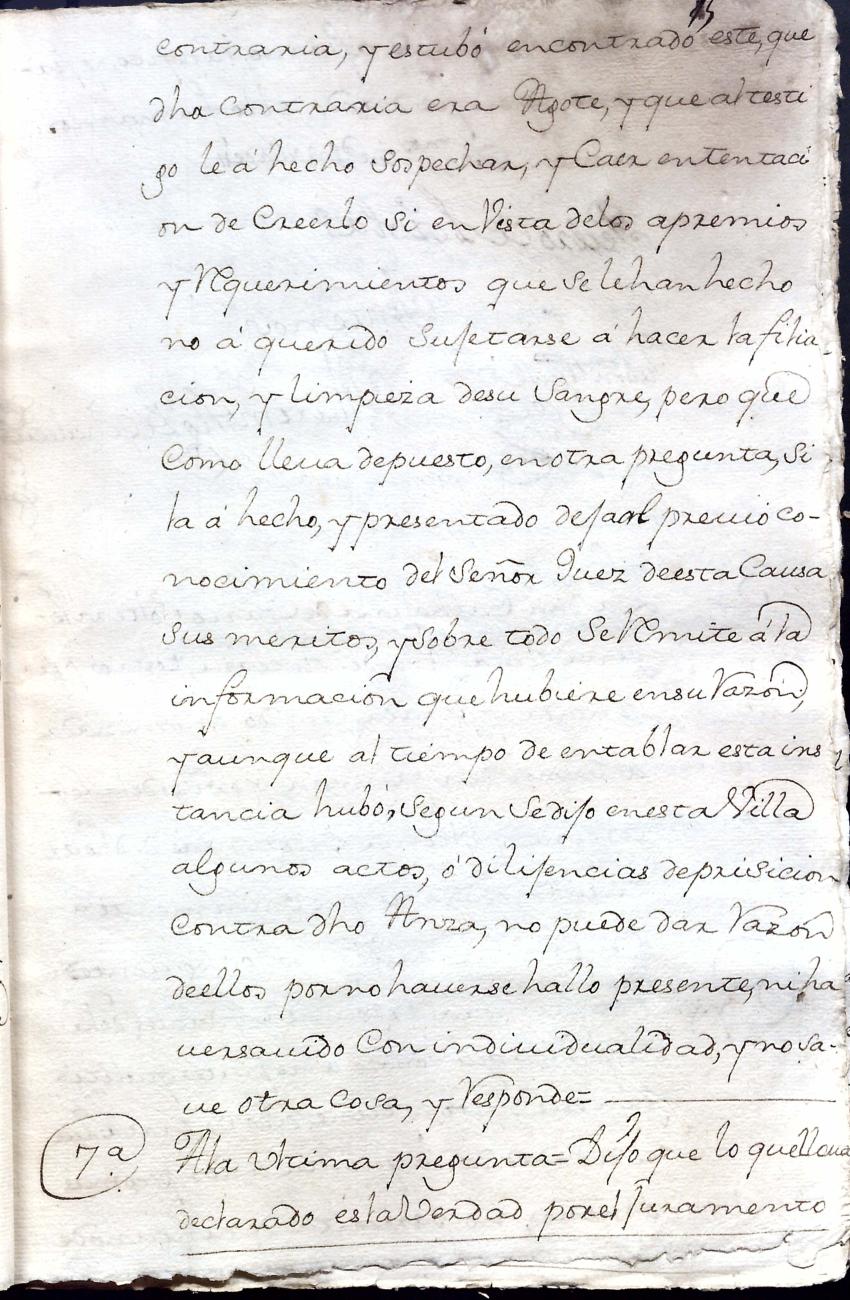 15
contraria, y estubó encontrado este, que
dha Contraria era Agote, y que al testi
go le á hecho Sospechar, y Caer en tentaci
on de Creerlo si en Vista de los apremios
y Requerimientos que se le han hecho
no á querido Sujetarse á hacer la filia-
cion, y limpieza de su Sangre, pero que
Como lleva depuesto, en otra pregunta, si
la á hecho, y presentado dejaal previo co-
nocimiento del Señor Juez de esta Causa
sus meritos, y sobre todo se Remite á la
informacion que hubiere en su Razon,
y aunque al tiempo de entablar esta ins
tancia hubó, segun se dijo en esta Villa
algunos actos, ó dilijencias de pricision
Contra dho Anza, no puede dar Razon
de ellos por no haverse hallo presente, ni ha
ver savido Con individualidad, y no sa-
ve otra Cosa, y Responde=
7ª A la Vltima pregunta= Dijo que lo que lleva
declarado es la Verdad por el Juramento